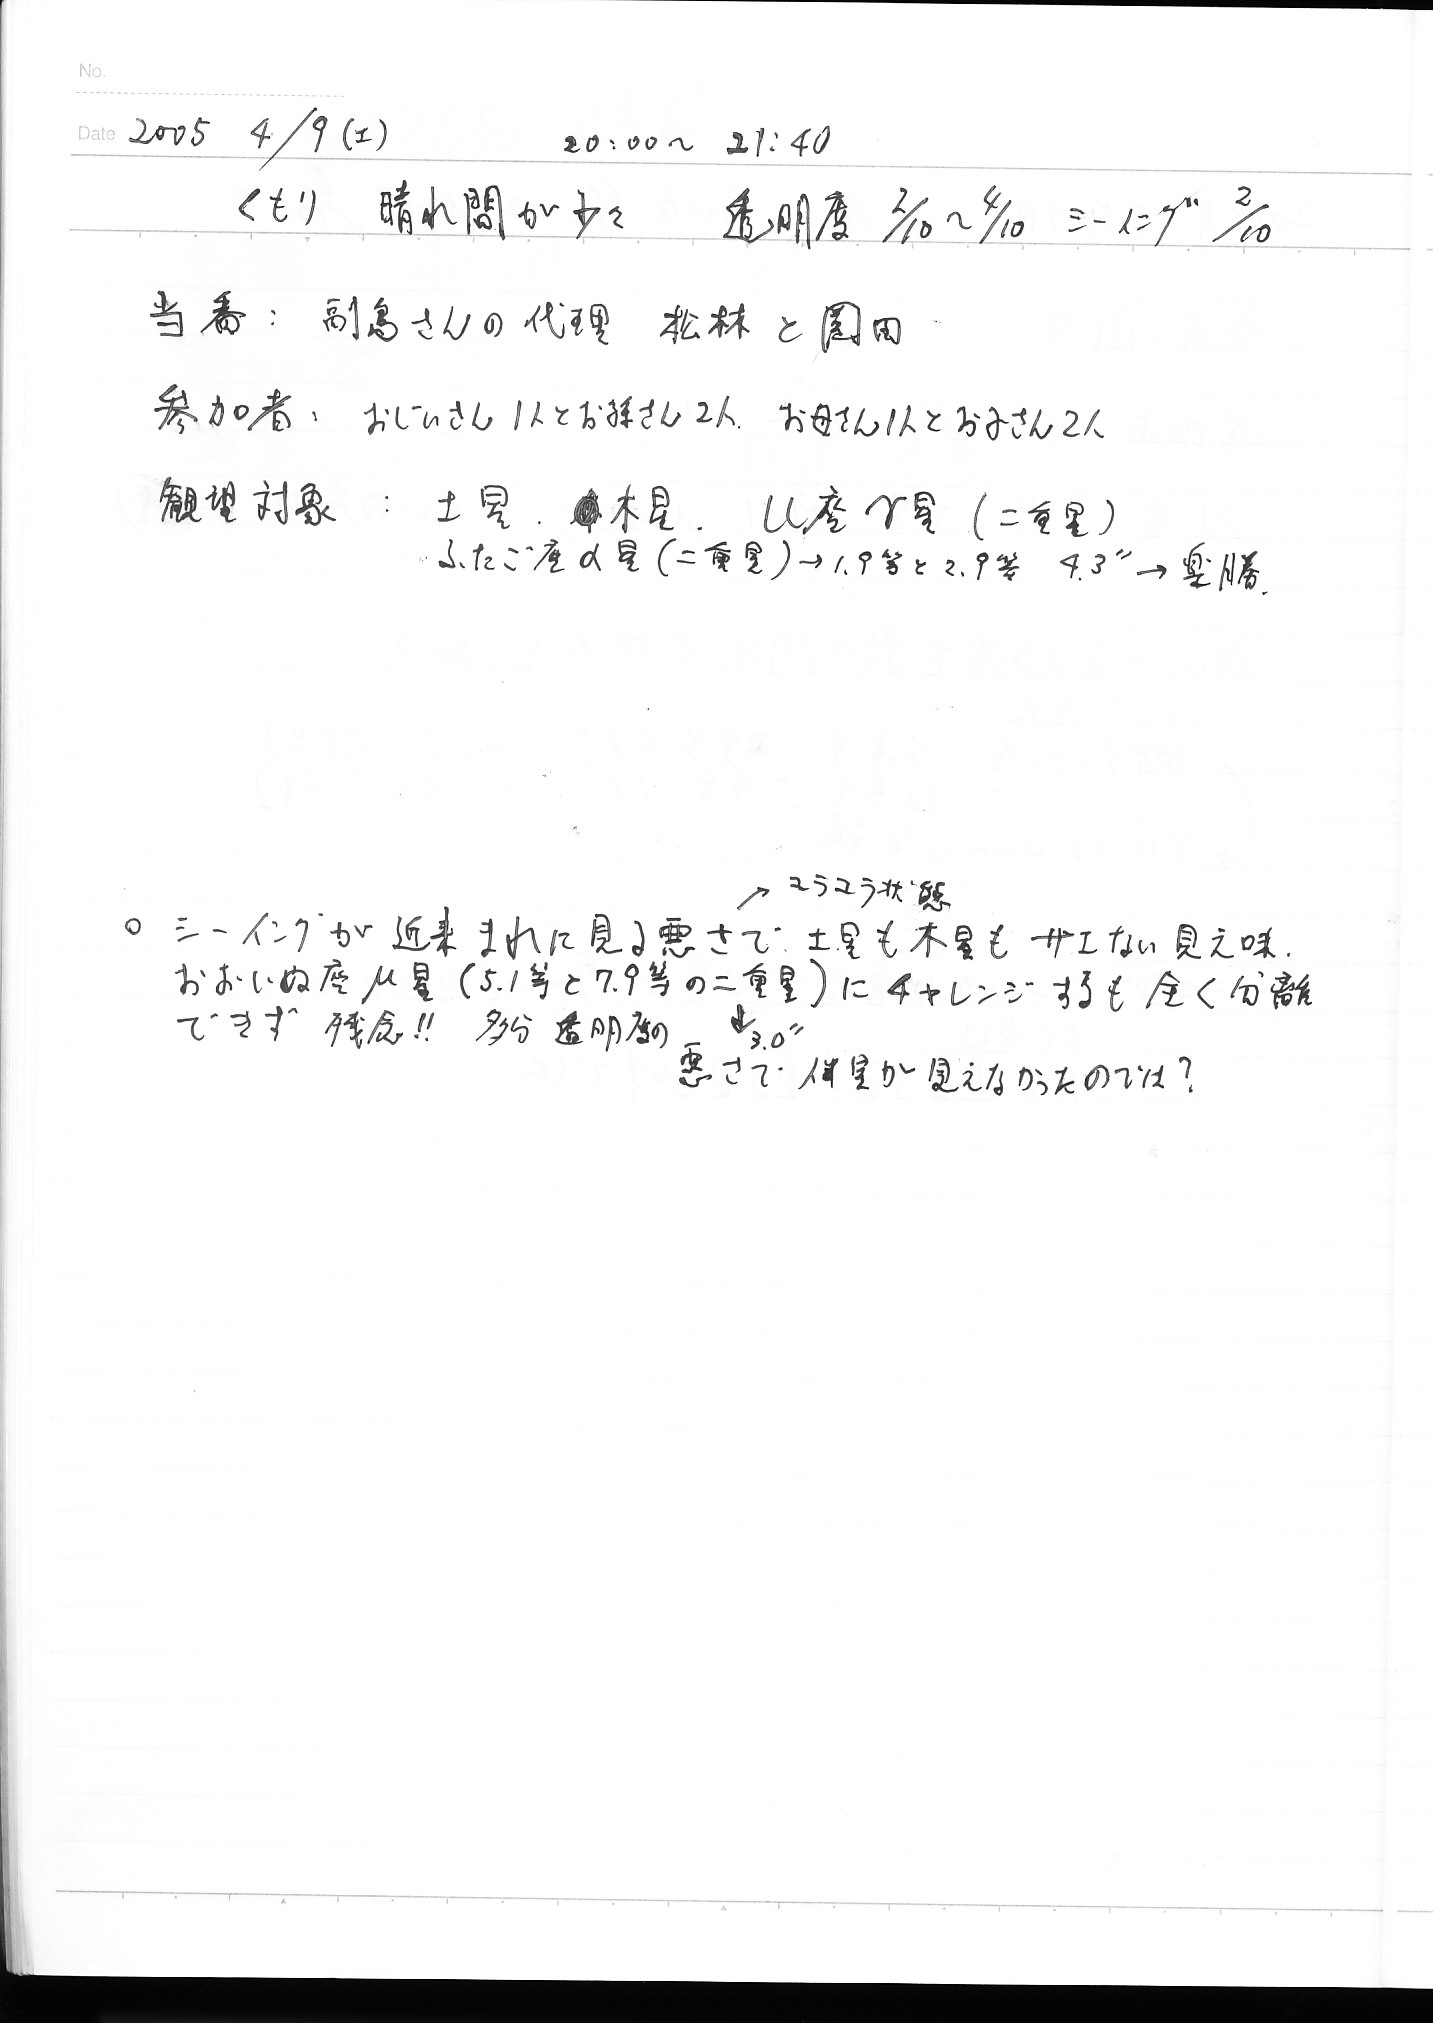 No.
Date 2005 4/9(土) 20:00〜 21:40
くもり 晴れ間が少々 透明度 2/10〜4/10 シーイング 2/10
当番: 副島さんの代理 松林と園田
参加者: おじいさん1人とお孫さん2人. お母さん1人とお子さん2人
観望対象 : 土星. 木星. しし座γ星 (二重星)
ふたご座α星(二重星)→1.9等と2.9等 4.3″→楽勝.
↗ユラユラ状態
○ シーイングが近来まれに見る悪さで 土星も木星もサエない見え味.
おおいぬ座μ星 (5.1等と7.9等の二重星)にチャレンジするも全く分離
できず 残念!! 多分 透明度の ↓3.0″
悪さで 伴星が見えなかったのでは?